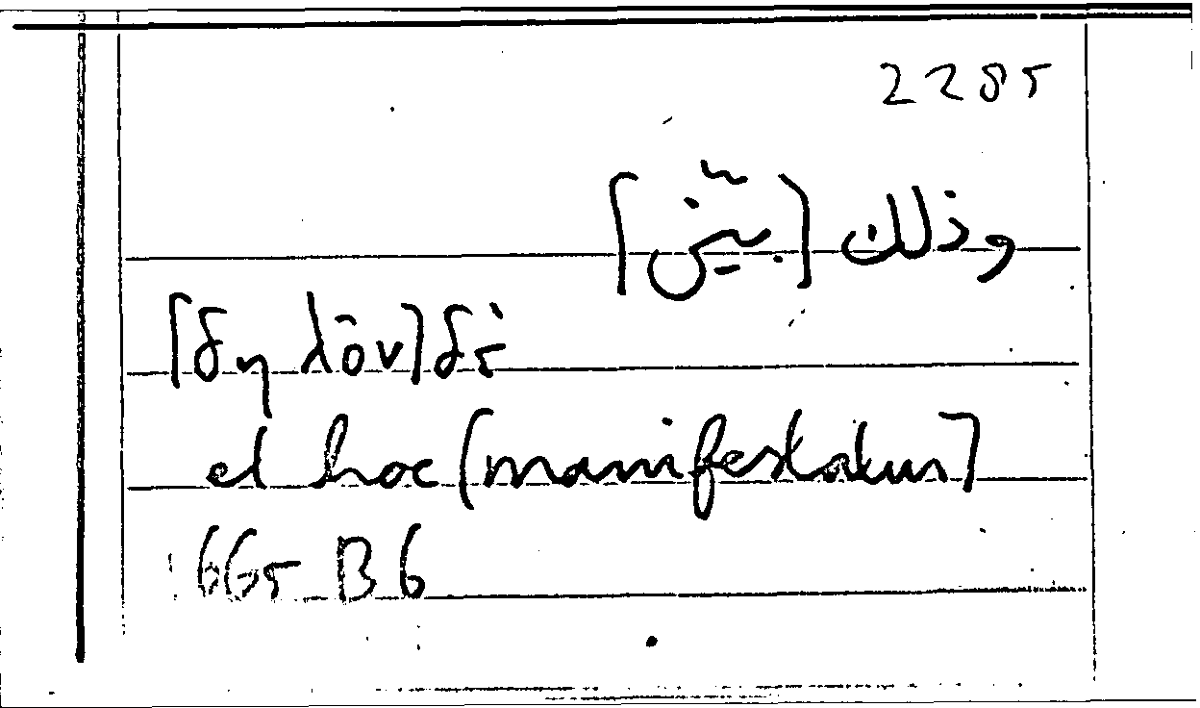 2285
وذلك [بيّن]
[δηλον] δὲ
et hoc [manifestatur]
665 B 6